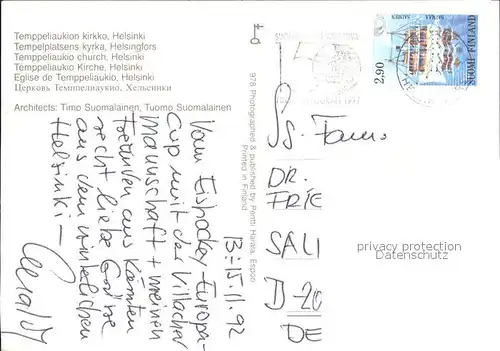 Temppeliaukion kirkko, Helsinki
Tempelplatsens kyrka, Helsingfors
Temppeliaukio church, Helsinki
Temppeliaukio Kirche, Helsinki
Eglise de Temppeliaukio, Helsinki
Церковь Темппелиаукио, Хельсинки
Architects: Timo Suomalainen, Tuomo Suomalainen
13.-15.11.92
Vom Eishockey-Europa-
Cup mit der Villacher
Mannschaft + meinen
Freunden aus Kärnten
recht liebe Grüße
aus dem winterlichen
Helsinki –
978 Photographed & published by Pentti Harala, Espoo
Printed in Finland
2,90
SUOMI FINLAND
Fam.
DR.
FRIE
SALI
D-20
DE
privacy protection
Datenschutz